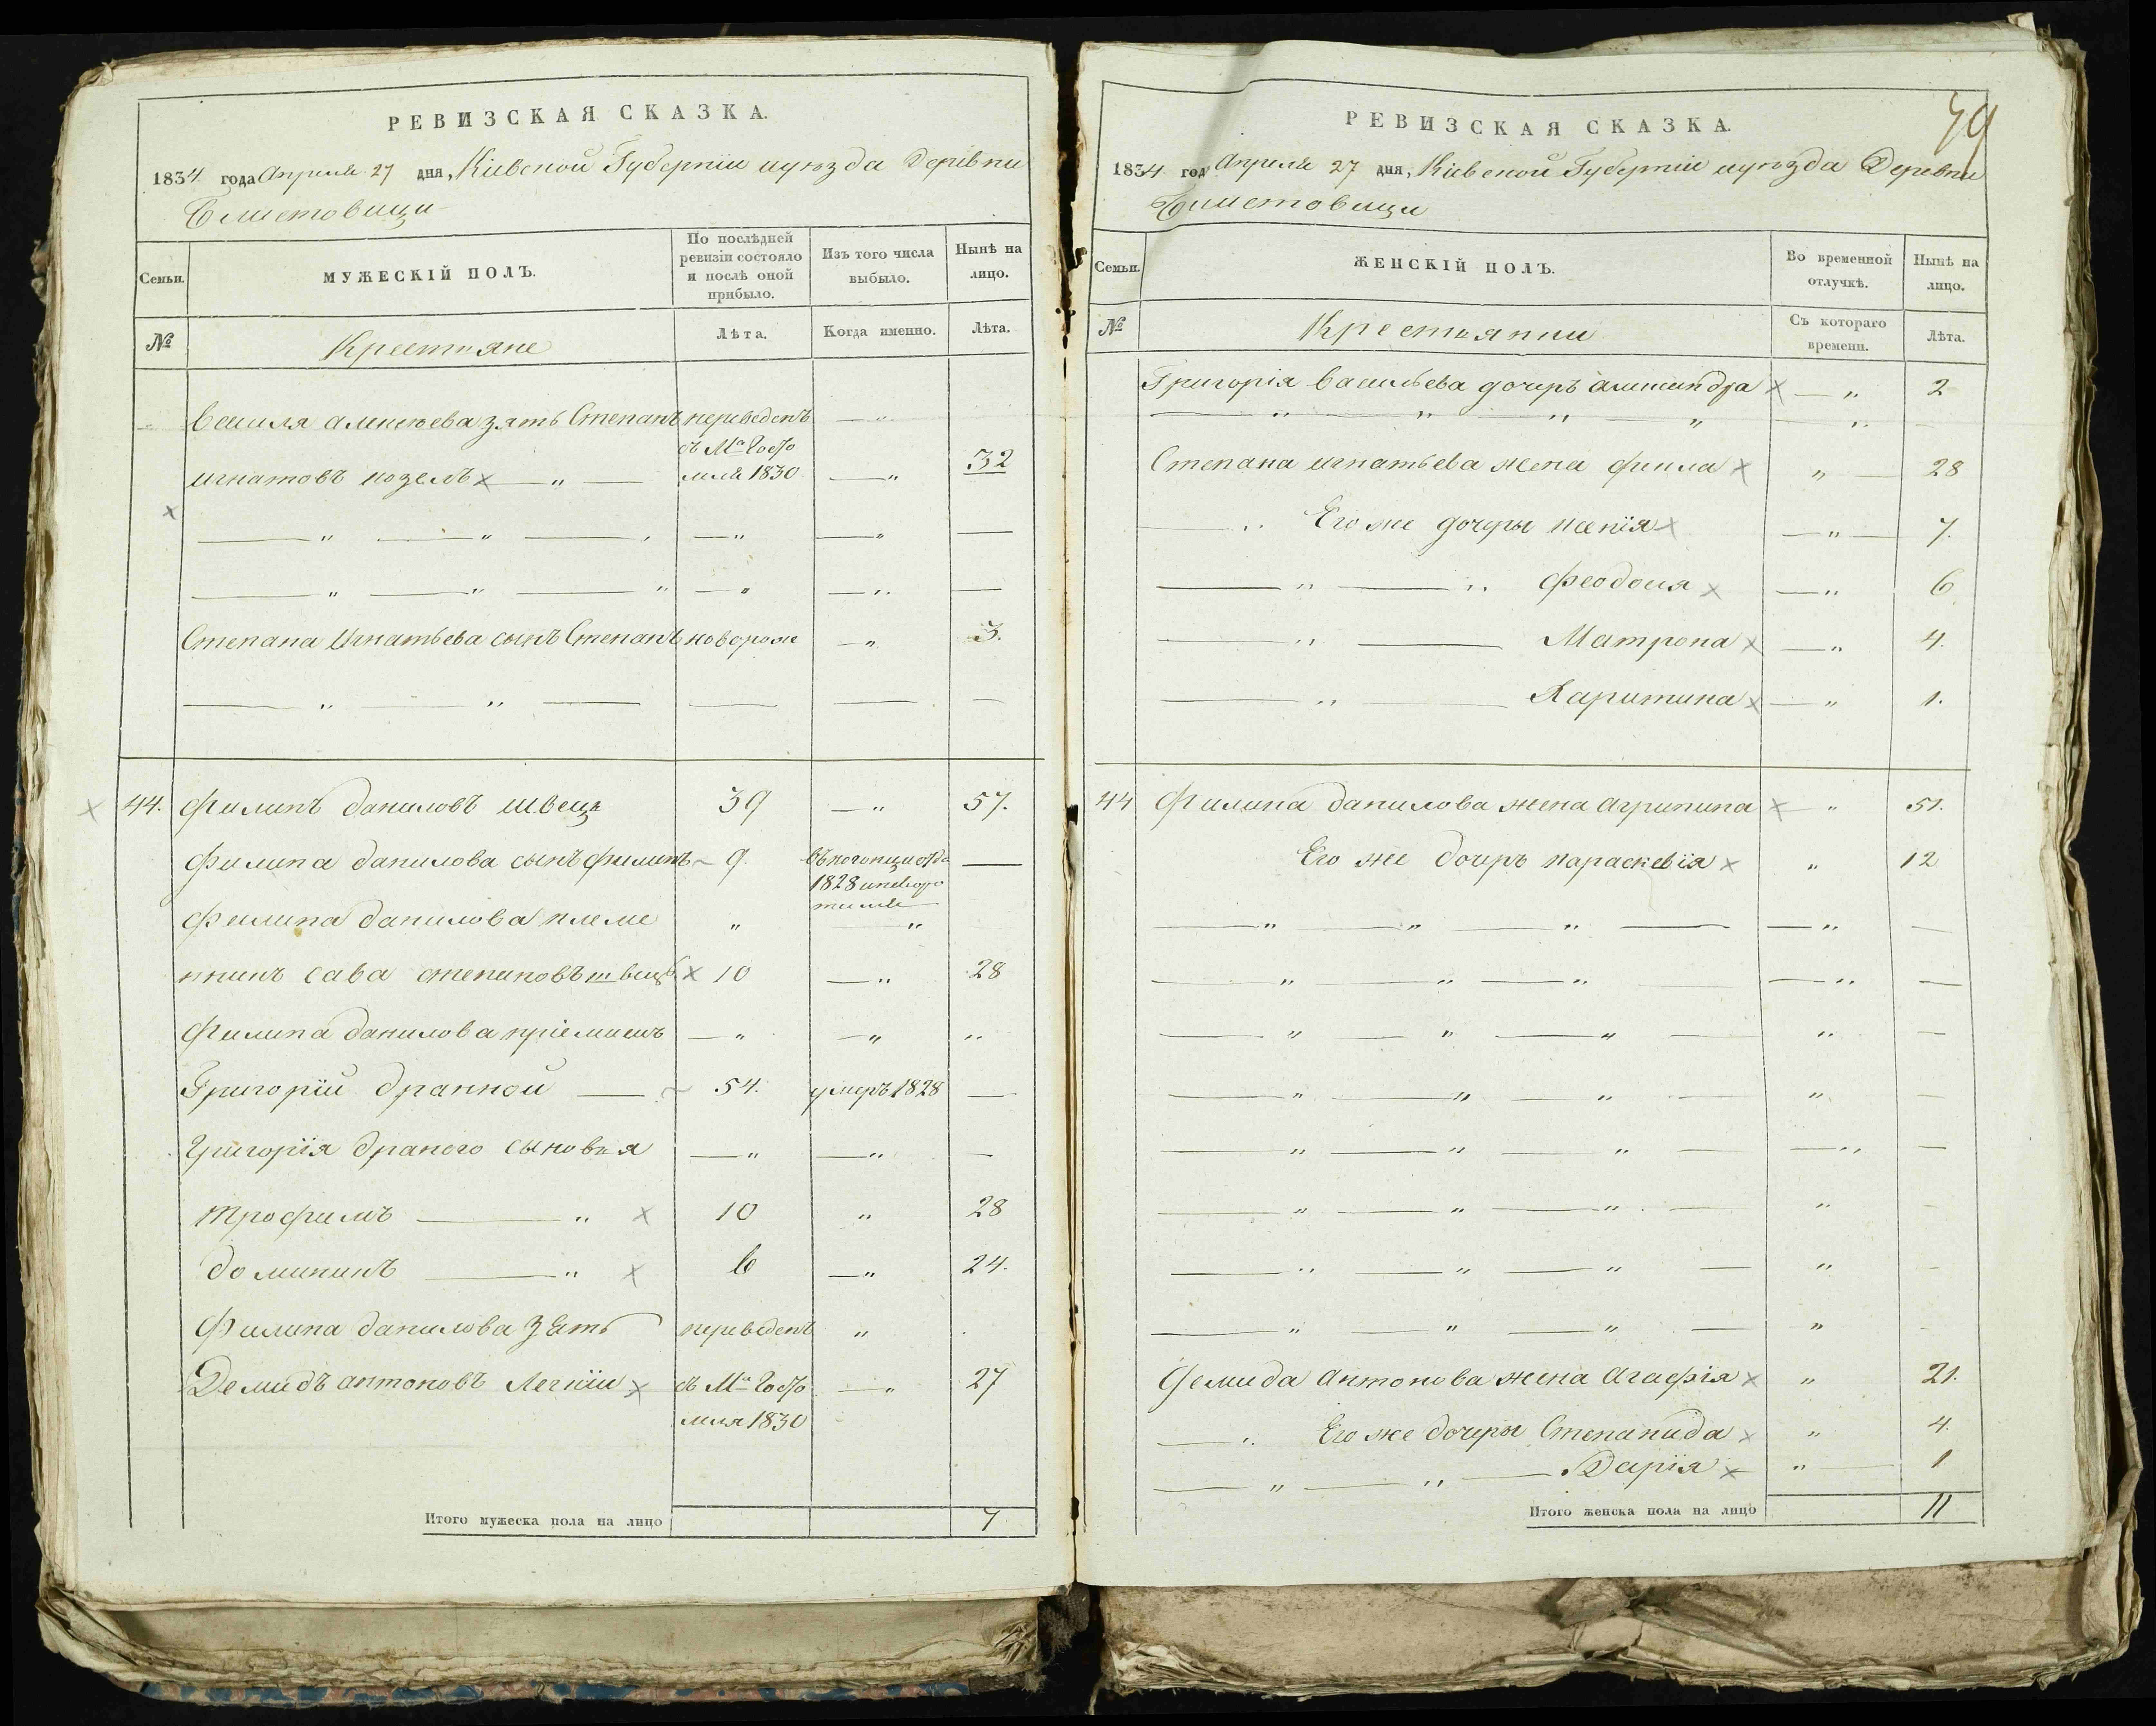 РЕВИЗСКАЯ СКАЗКА.
1834 года Апреля 27 дня, Кіевской Губерніи и уезда Деревни
МУЖЕСКІЙ ПОЛЪ.
Семьи.
По послѣдней ревизіи состояло и послѣ оной прибыло.
Изъ того числа выбыло.
Нынѣ на лицо.
№
Крестьяне
Лѣта.
Когда именно.
Лѣта.
зять Степанъ переведенъ — "
съ Ма Госто
игнатовъ козелъ х — " — мля 1830 — " 32
х
— " — " — " — " — " —
— " — " — " — " — " —
Степана Игнатьева сынъ Степанъ новорож — " 3.
— " — " — — — —
х 44. Филипъ даниловъ швецъ 39 — " 57.
Филипа данилова сынъ филипъ ~ 9. —
1828
Филипа данилова племе " — "
нникъ сава степановъ швецъ х 10 — " 28
Филипа данилова пріемышъ — " — " "
Григорій дранной — ~ 54. умеръ 1828 —
Григорія драного сыновья — " — " —
трофимъ — " х 10 " 28
доминикъ — " х 6 — " 24.
Филипа данилова зять переведенъ "
Демидъ антоновъ Легкій х съ Ма Госто — " 27
мля 1830
Итого мужеска пола на лицо 7
79
РЕВИЗСКАЯ СКАЗКА.
1834 год Апреля 27 дня, Кіевской Губерніи и уезда Деревни
Семьи.
ЖЕНСКІЙ ПОЛЪ.
Во временной отлучкѣ.
Нынѣ на лицо.
№
Крестьянки
Съ котораго времени.
Лѣта.
Григорія васильева дочеръ александра х — " 2
— " — " — " — " — " —
Степана игнатьева жена фекла х " — 28
— " Его же дочеры ксенія х — " — 7.
— " — " феодосия х — " 6
— " — Матрона х — " 4.
— " — Харитина х — " 1.
44 Филипа данилова жена агрипина х — " 51.
Его же дочеръ параскевія х " 12
— " — " — " — — " —
— " — " — " — — " —
— " — " — " — " —
— " — " — " — " —
— " — " — " — — " —
— " — " — " — " —
— " — " — " — " —
— " — " — " — " —
Демида антонова жена агафія х " 21.
— " Его же дочеры Степанида х " 4.
— " — " — Дарія х " — 1
Итого женска пола на лицо 11